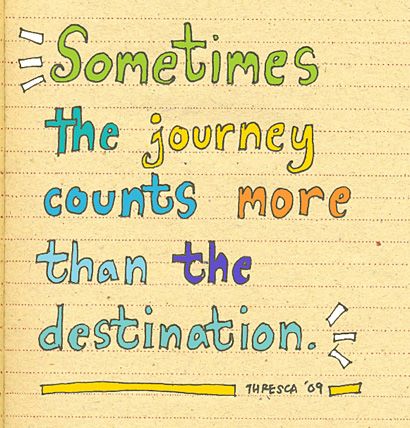 Sometimes
the journey
counts more
than the
destination.
THRESCA '09